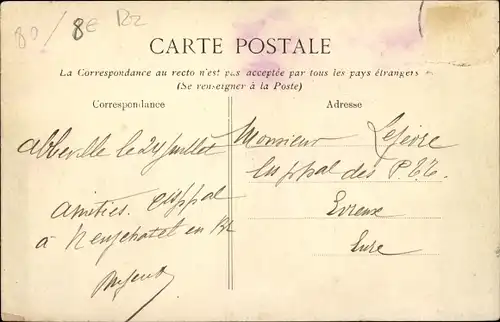 80/ 8E
CARTE POSTALE
La Correspondance au recto n'est pas acceptée par tous les pays étrangers
(Se renseigner à la Poste)
Correspondance
Adresse
Abbeville le 24 Juillet
Amitiés
à Neufchatel en
Monsieur Lefèvre
des P.T.T.
Evreux
Eure